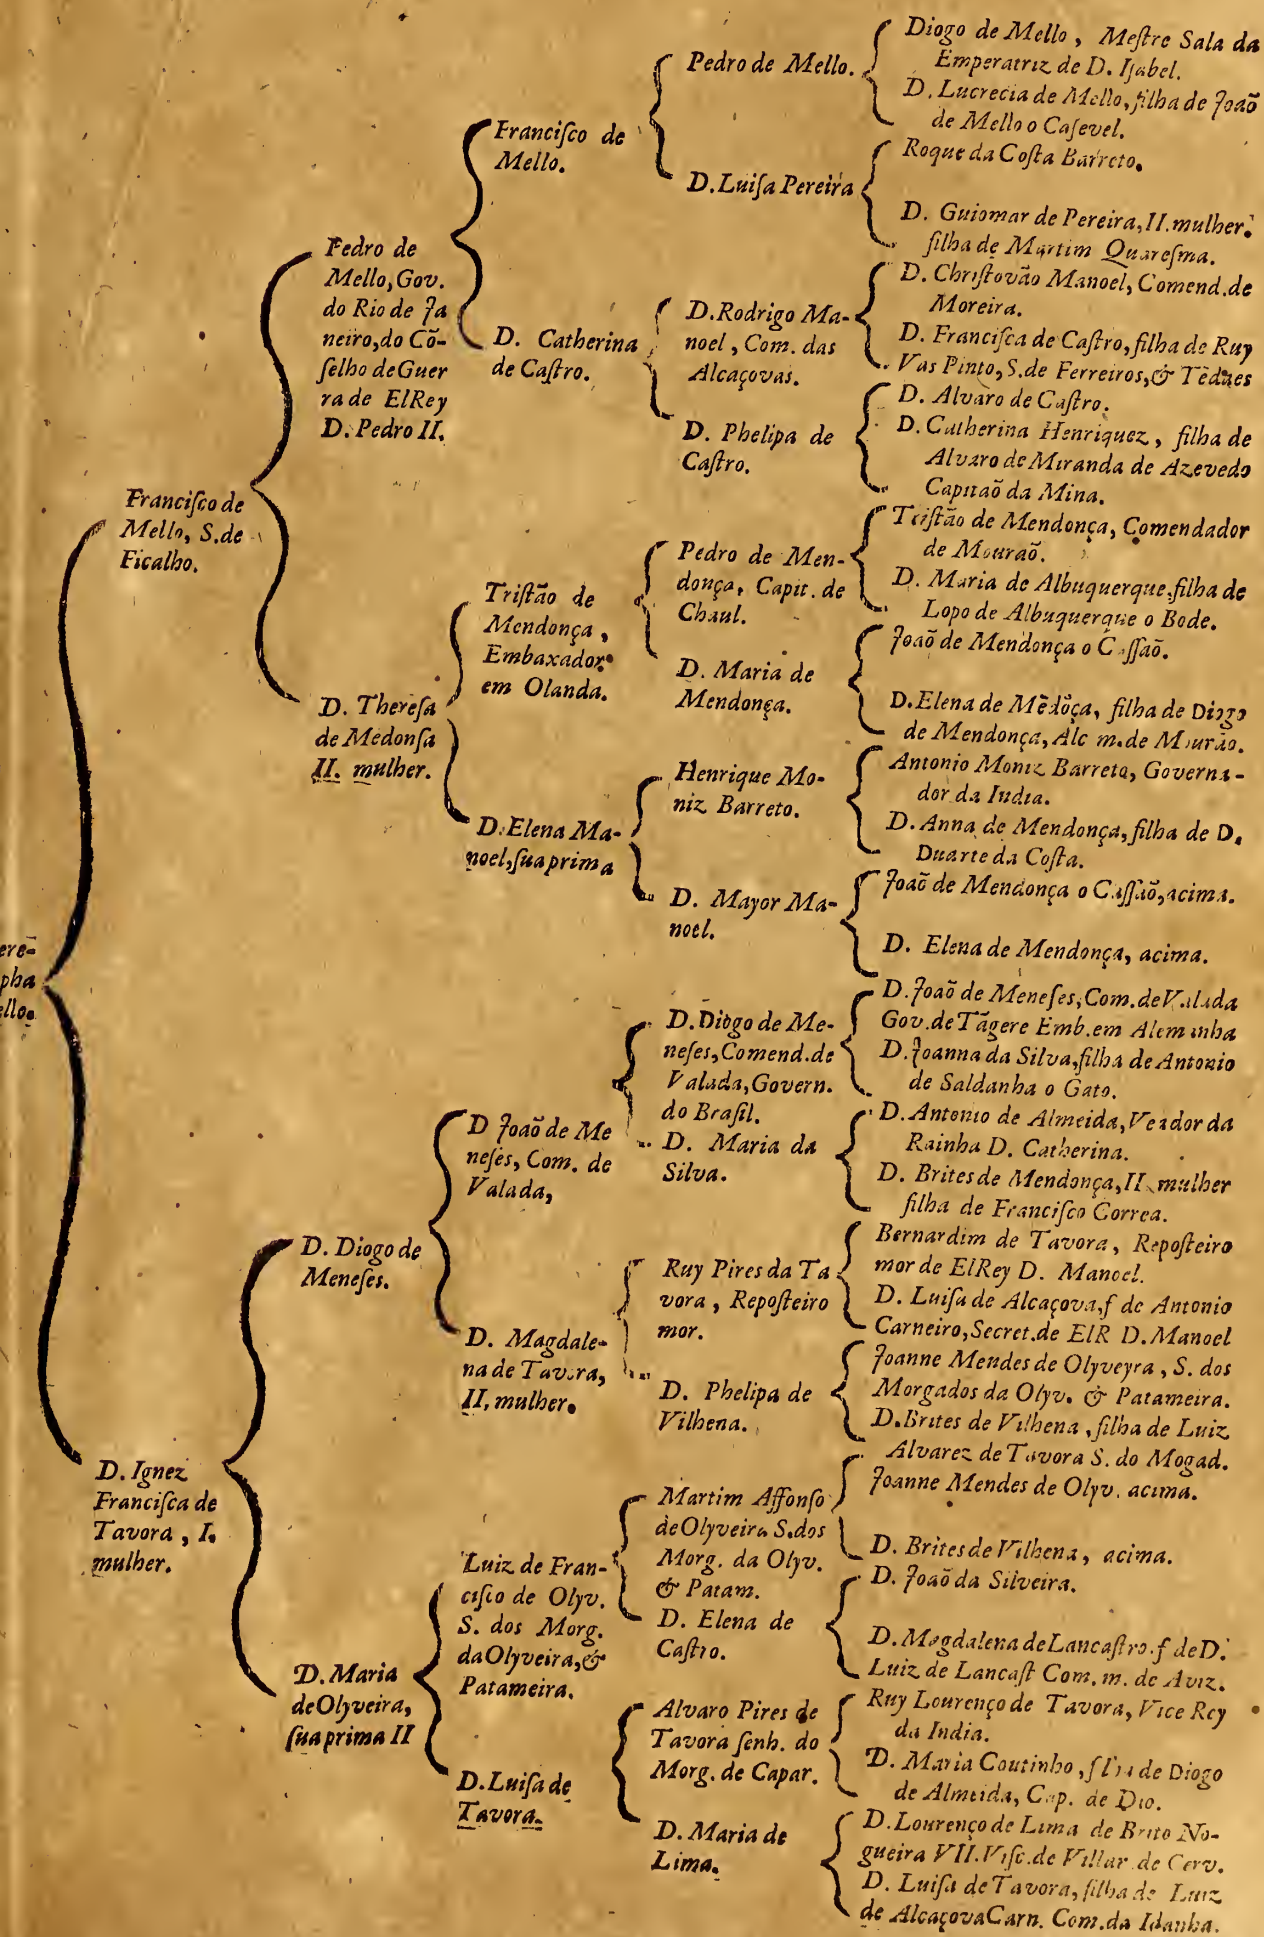 ere-
pha
ello.
Francisco de
Mello, S. de
Ficalho.
D. Ignez
Francisca de
Tavora, I.
mulher.
Pedro de
Mello, Gov.
do Rio de Ja
neiro, do Cõ-
selho de Guer
ra de ElRey
D. Pedro II.
D. Theresa
de Medonsa
II. mulher.
D. Diogo de
Meneses.
D. Maria
de Olyveira,
sua prima II
Francisco de
Mello.
D. Catherina
de Castro.
Tristão de
Mendonça,
Embaxador
em Olanda.
D. Elena Ma-
noel, sua prima
D João de Me
neses, Com. de
Valada,
D. Magdale-
na de Tavora,
II, mulher.
Luiz de Fran-
cisco de Olyv.
S. dos Morg.
da Olyveira, &
Patameira.
D. Luisa de
Tavora.
Pedro de Mello.
D. Luisa Pereira
D. Rodrigo Ma-
noel, Com. das
Alcaçovas.
D. Phelipa de
Castro.
Pedro de Men-
donça, Capit. de
Chaul.
D. Maria de
Mendonça.
Henrique Mo-
niz Barreto.
D. Mayor Ma-
noel.
D. Diogo de Me-
neses, Comend. de
Valada, Govern.
do Brasil.
D. Maria da
Silva.
Ruy Pires da Ta
vora, Reposteiro
mor.
D. Phelipa de
Vilhena.
Martim Affonso
de Olyveira S. dos
Morg. da Olyv.
& Patam.
D. Elena de
Castro.
Alvaro Pires de
Tavora senh. do
Morg. de Capar.
D. Maria de
Lima.
Diogo de Mello, Mestre Sala da
Emperatriz de D. Isabel.
D. Lucrecia de Mello, filha de João
de Mello o Casevel.
Roque da Costa Barreto.
D. Guiomar de Pereira, II. mulher.
filha de Martim Quaresma.
D. Christovão Manoel, Comend. de
Moreira.
D. Francisca de Castro, filha de Ruy
Vas Pinto, S. de Ferreiros, & Tẽdaes
D. Alvaro de Castro.
D. Catherina Henriquez, filha de
Alvaro de Miranda de Azevedo
Capitaõ da Mina.
Tristão de Mendonça, Comendador
de Mouraõ.
D. Maria de Albuquerque, filha de
Lopo de Albuquerque o Bode.
Joaõ de Mendonça o Cassaõ.
D. Elena de Mẽdõça, filha de Diogo
de Mendonça, Alc m. de Mourão.
Antonio Moniz Barreto, Governa-
dor da India.
D. Anna de Mendonça, filha de D.
Duarte da Costa.
Joaõ de Mendonça o Cassaõ, acima.
D. Elena de Mendonça, acima.
D. Joaõ de Meneses, Com. de Valada
Gov. de Tãgere Emb. em Alemanha
D. Joanna da Silva, filha de Antonio
de Saldanha o Gato.
D. Antonio de Almeida, Veador da
Rainha D. Catherina.
D. Brites de Mendonça, II. mulher
filha de Francisco Correa.
Bernardim de Tavora, Reposteiro
mor de ElRey D. Manoel.
D. Luisa de Alcaçova, f de Antonio
Carneiro, Secret. de ElR D. Manoel
Joanne Mendes de Olyveyra, S. dos
Morgados da Olyv. & Patameira.
D. Brites de Vilhena, filha de Luiz
Alvarez de Tavora S. do Mogad.
Joanne Mendes de Olyv. acima.
D. Brites de Vilhena, acima.
D. Joaõ da Silveira.
D. Magdalena de Lancastro. f de D.
Luiz de Lancast Com. m. de Aviz.
Ruy Lourenço de Tavora, Vice Rey
da India.
D. Maria Coutinho, filha de Diogo
de Almeida, Cap. de Dio.
D. Lourenço de Lima de Brito No-
gueira VII. Visc. de Villar de Cerv.
D. Luisa de Tavora, filha de Luiz
de Alcaçova Carn. Com. da Idanha.